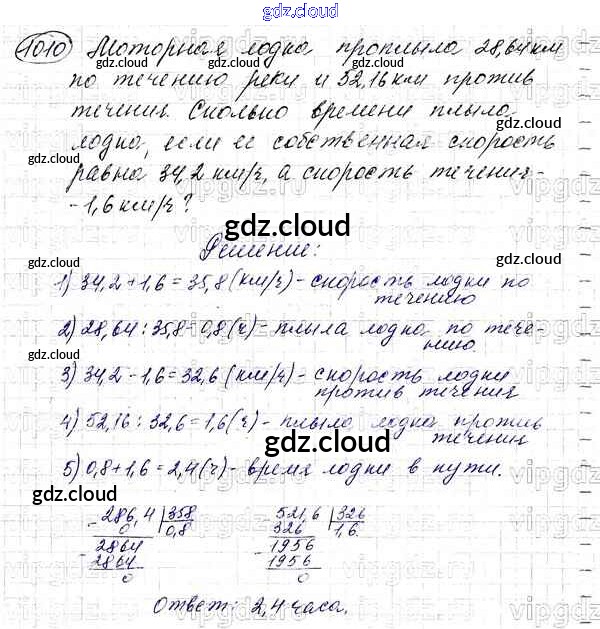 gdz.cloud
1010 Моторная лодка проплыла 28,64 км
по течению реки и 52,16 км против
течения. Сколько времени плыла
лодка, если ее собственная скорость
равна 34,2 км/ч, а скорость течения -
- 1,6 км/ч?
gdz.cloud
Решение:
1) 34,2 + 1,6 = 35,8 (км/ч) - скорость лодки по
течению
2) 28,64 : 35,8 = 0,8 (ч) - плыла лодка по тече-
нию.
3) 34,2 - 1,6 = 32,6 (км/ч) - скорость лодки
против течения
4) 52,16 : 32,6 = 1,6 (ч) - плыла лодка против
течения
gdz.cloud
5) 0,8 + 1,6 = 2,4 (ч) - время лодки в пути.
286,4 358
0 0,8
2864
2864
0
521,6 326
326 1,6
1956
1956
0
Ответ: 2,4 часа.